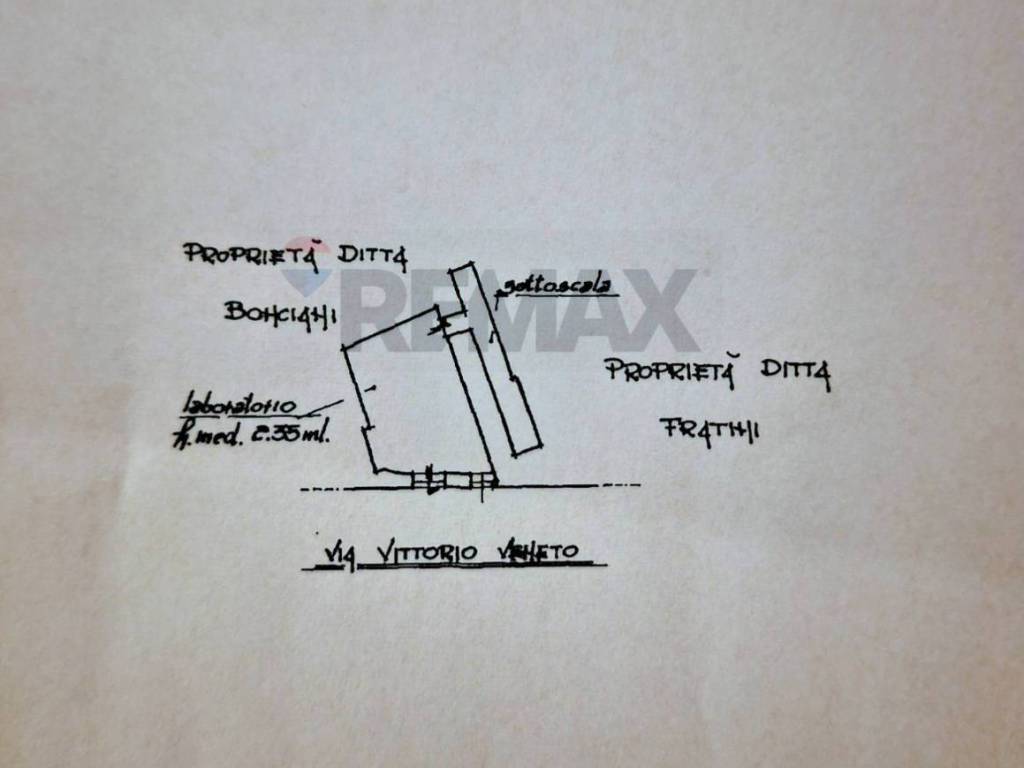 PROPRIETÀ DITTA
BONCIANI
REMAX
sottoscala
PROPRIETÀ DITTA
FRATINI
laboratorio
h.med. 2.35 ml.
VIA VITTORIO VENETO